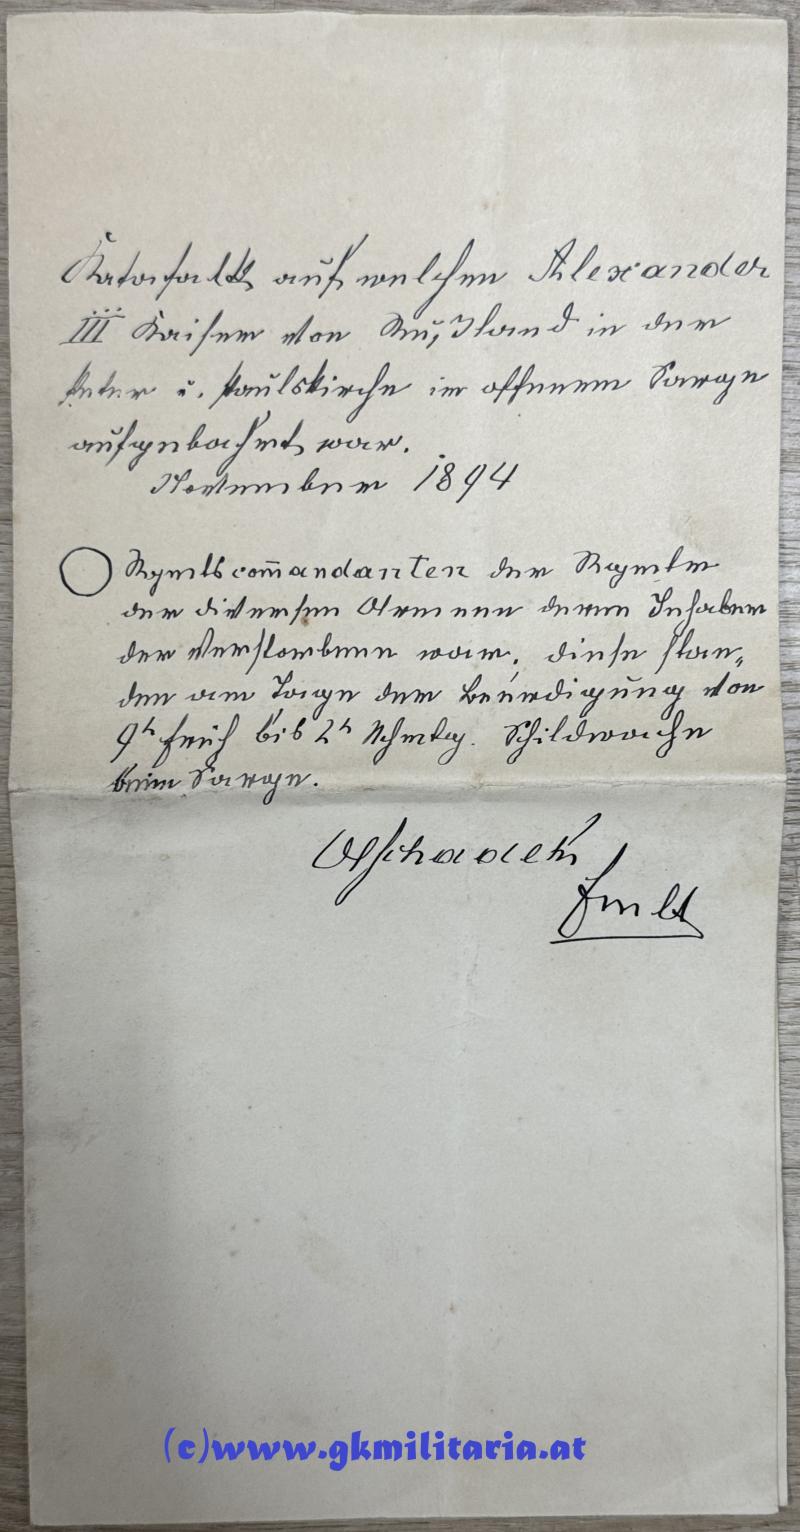 Katafalk auf welchen Alexander
III Kaiser von Rußland in der
Peter u. Paulskirche im offenem Sarge
aufgebahrt war.
November 1894
Regmtscommandanten der Regmter
der diversen Armeen deren Inhaber
der Verstorbene war, diese stan-
den am Tage der Beerdigung von
9h früh bis 2h Nchmttg. Schildwache
beim Sarge.
(c)www.gkmilitaria.at